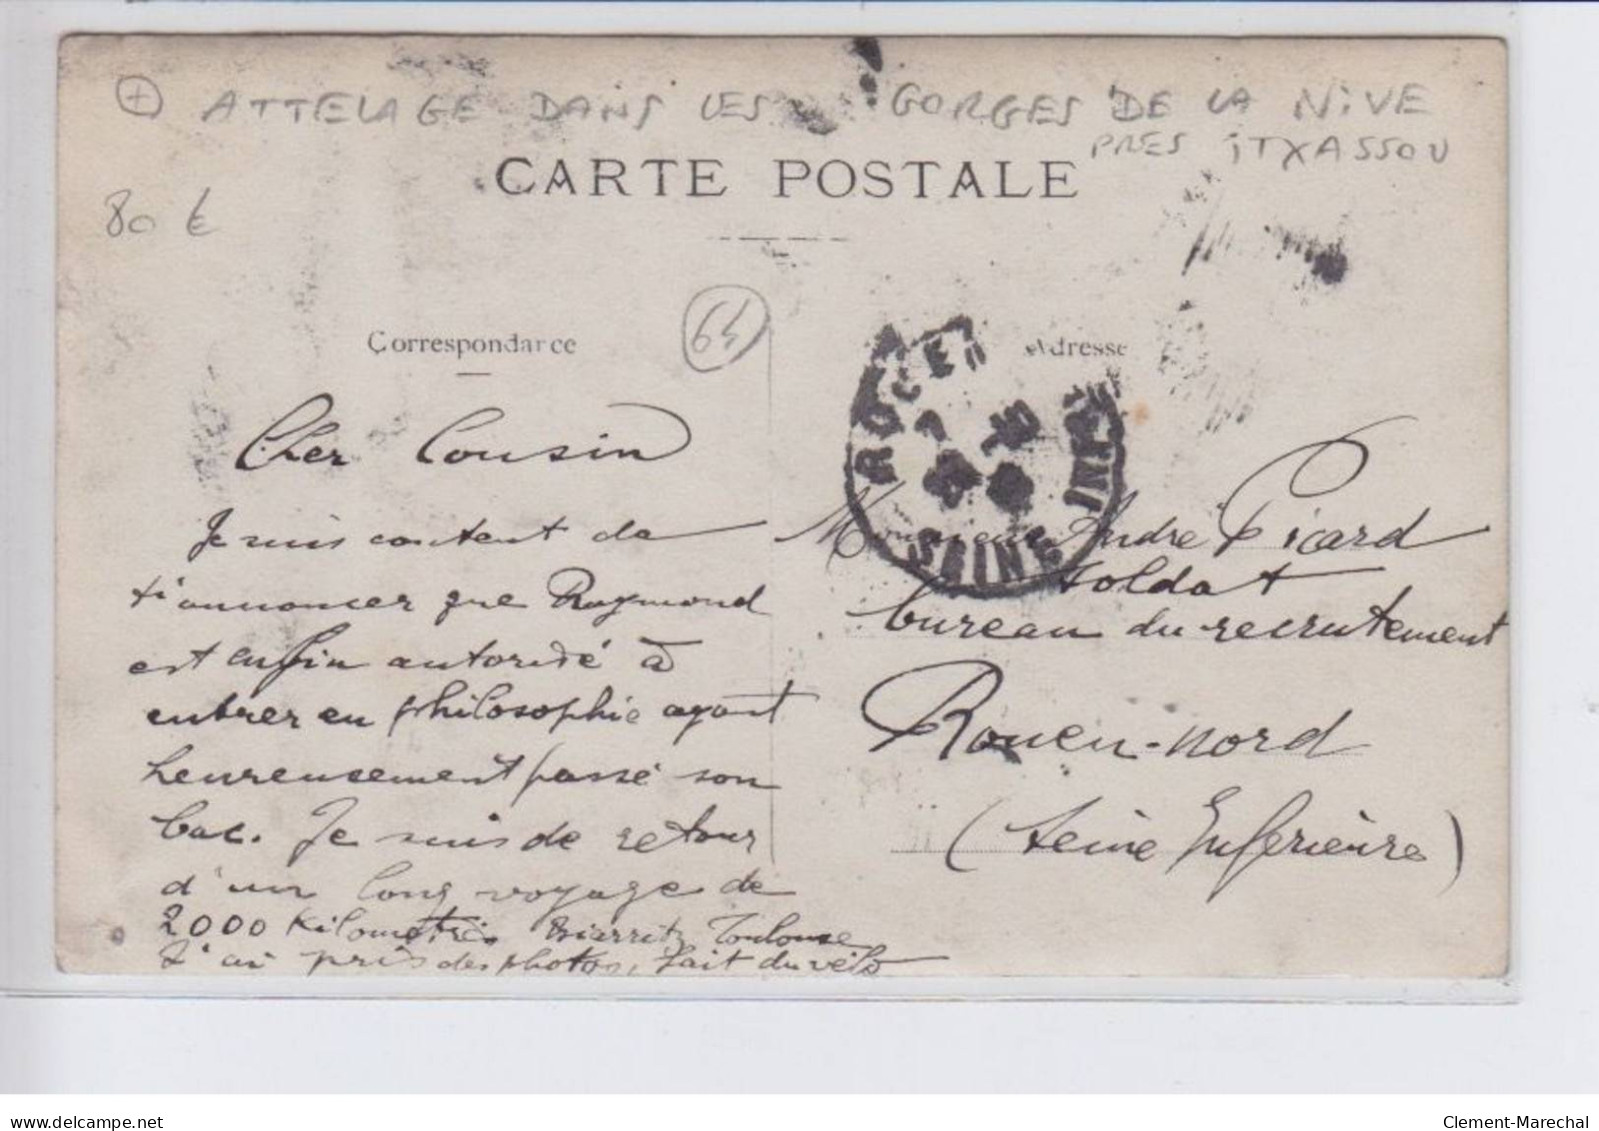 + ATTELAGE DANS LES GORGES DE LA NIVE
PRES ITXASSOU
CARTE POSTALE
80 €
64
Correspondance
Adresse
ROUEN
SEINE INF
Cher Cousin
Je suis content de
t'annoncer que Raymond
est enfin autorisé à
entrer en philosophie ayant
heureusement passé son
bac. Je suis de retour
d'un long voyage de
2000 kilometres Biarritz Toulouse
J'ai pris des photos, fait du vélo
Monsieur André Picard
soldat
bureau du recrutement
Rouen-nord
(Seine Inferieure)
delcampe.net
Clement-Marechal